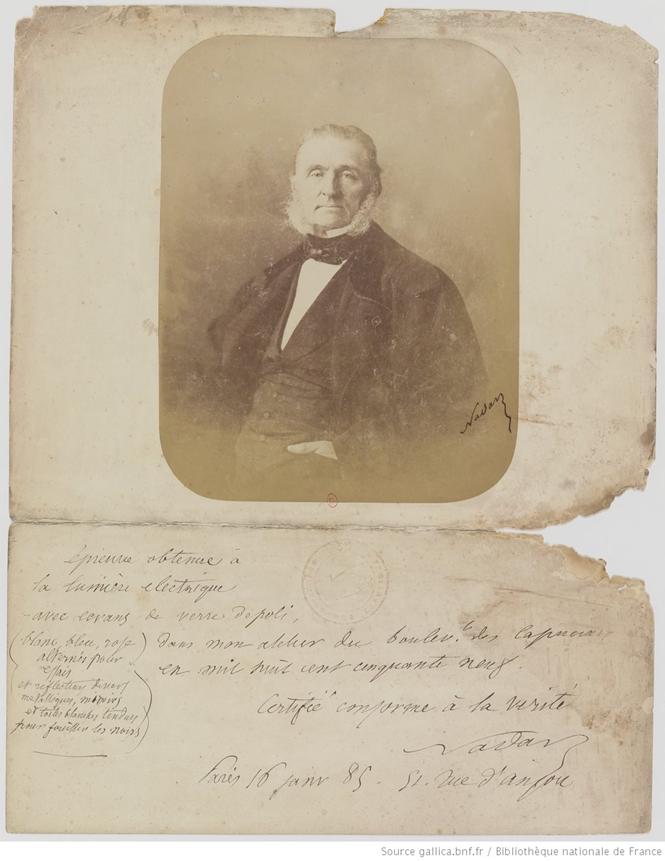 Nadar
épreuve obtenue à
la lumière electrique
- avec ecrans de verre depoli,
(blanc, bleu, rose
alternés pour
essais
et réflecteurs divers
metalliques, miroirs
et toiles blanches tendues
pour fouiller les noirs)
dans mon atelier du boulev.t des Capucines
en mil huit cent cinquante neuf.
Certifié conforme à la verité
Nadar
Paris 16 janv 85. 51. rue d'anjou
Source gallica.bnf.fr / Bibliothèque nationale de France